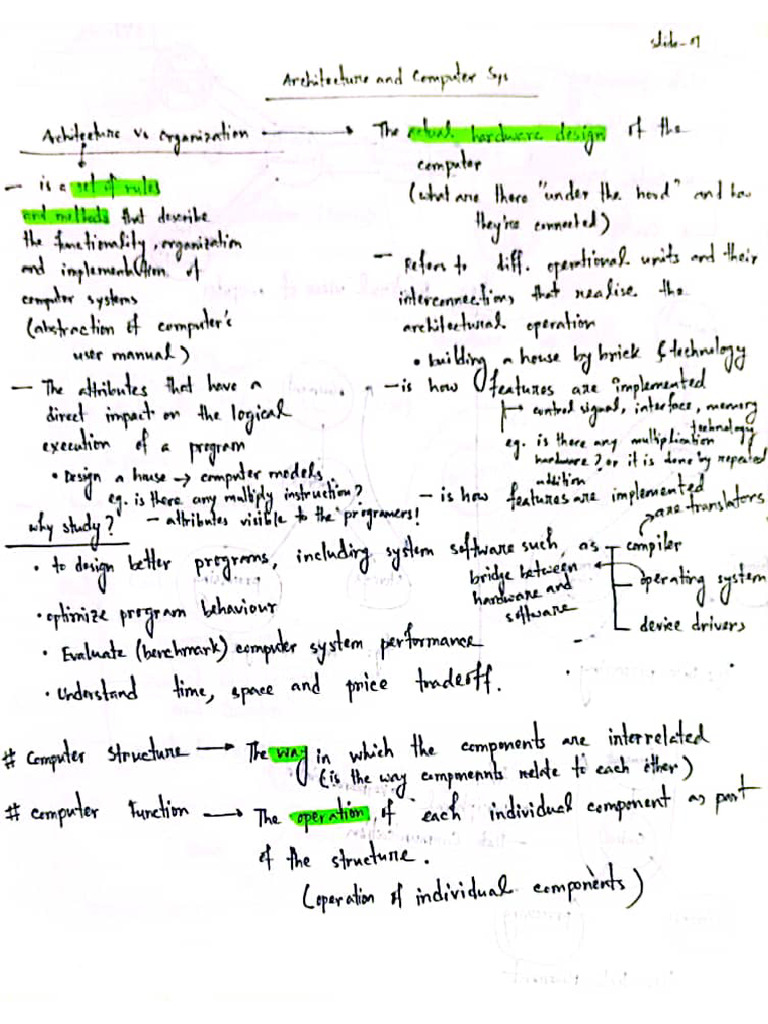 slide-01
Architecture and Computer Sys
Architecture vs organization
— is a set of rules
and methods that describe
the functionality, organization
and implementation of
computer systems
(abstraction of computer's
user manual)
— The attributes that have a
direct impact on the logical
execution of a program
• Design a house → computer models
eg. is there any multiply instruction?
— attributes visible to the programers!
→ The actual hardware design of the
computer
(what are there "under the hood" and how
they're connected)
— Refers to diff. operational units and their
interconnections that realise the
architectural operation
• building a house by brick & technology
— is how features are implemented
↳ control signal, interface, memory
technology
eg. is there any multiplication
hardware? or it is done by repeated
addition
— is how features are implemented
why study?
• to design better programs, including system software such as compiler
→ are translators
operating system
device drivers
bridge between
hardware and
software
• optimize program behaviour
• Evaluate (benchmark) computer system performance
• Understand time, space and price tradeoff.
# Computer Structure → The way in which the components are interrelated
(is the way components relate to each other)
# computer Function → The operation of each individual component as part
of the structure.
(operation of individual components)